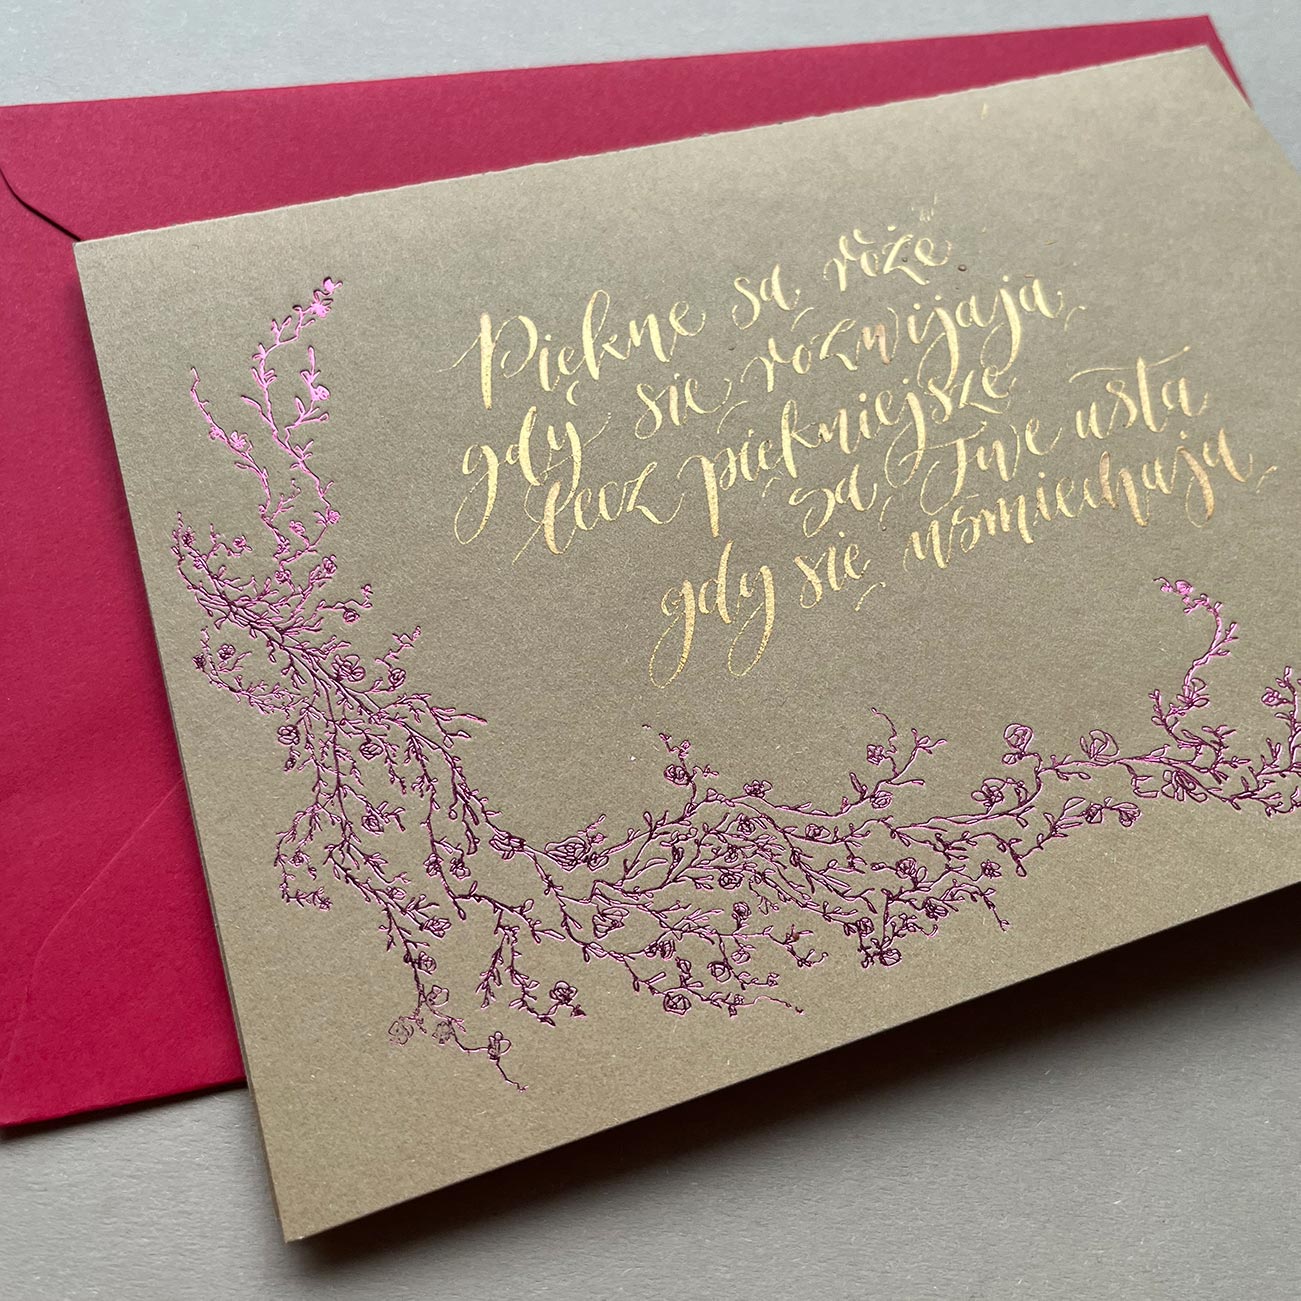 Piękne są róże
gdy się rozwijają
lecz piękniejsze
są Twe usta
gdy się uśmiechają